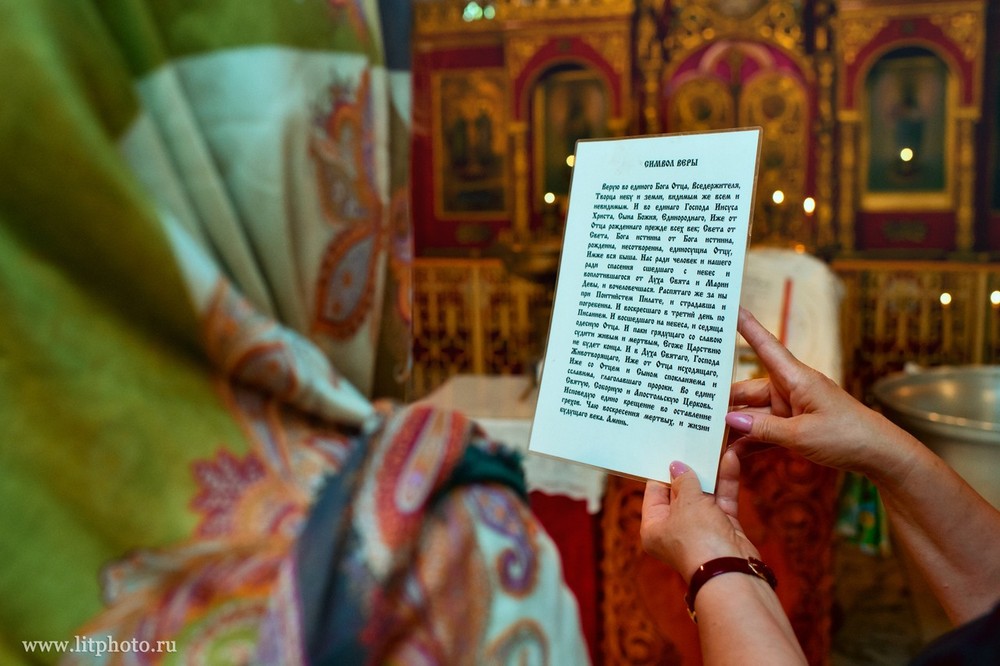 СИМВОЛ ВЕРЫ
Верую во единого Бога Отца, Вседержителя,
Творца небу и земли, видимым же всем и
невидимым. И во единаго Господа Иисуса
Христа, Сына Божия, Единороднаго, Иже от
Отца рожденнаго прежде всех век; Света от
Света, Бога истинна от Бога истинна,
рожденна, несотворенна, единосущна Отцу,
Имже вся быша. Нас ради человек и нашего
ради спасения сшедшаго с небес и
воплотившагося от Духа Свята и Марии
Девы, и вочеловечшася. Распятаго же за ны
при Понтийстем Пилате, и страдавша и
погребенна. И воскресшаго в третий день по
Писанием. И восшедшаго на небеса, и седяща
одесную Отца. И паки грядущаго со славою
судити живым и мертвым, Егоже Царствию
не будет конца. И в Духа Святаго, Господа
Животворящаго, Иже от Отца исходящаго,
Иже со Отцем и Сыном споклоняема и
сславима, глаголавшаго пророки. Во едину
Святую, Соборную и Апостольскую Церковь.
Исповедую едино крещение во оставление
грехов. Чаю воскресения мертвых, и жизни
будущаго века. Аминь.
www.litphoto.ru